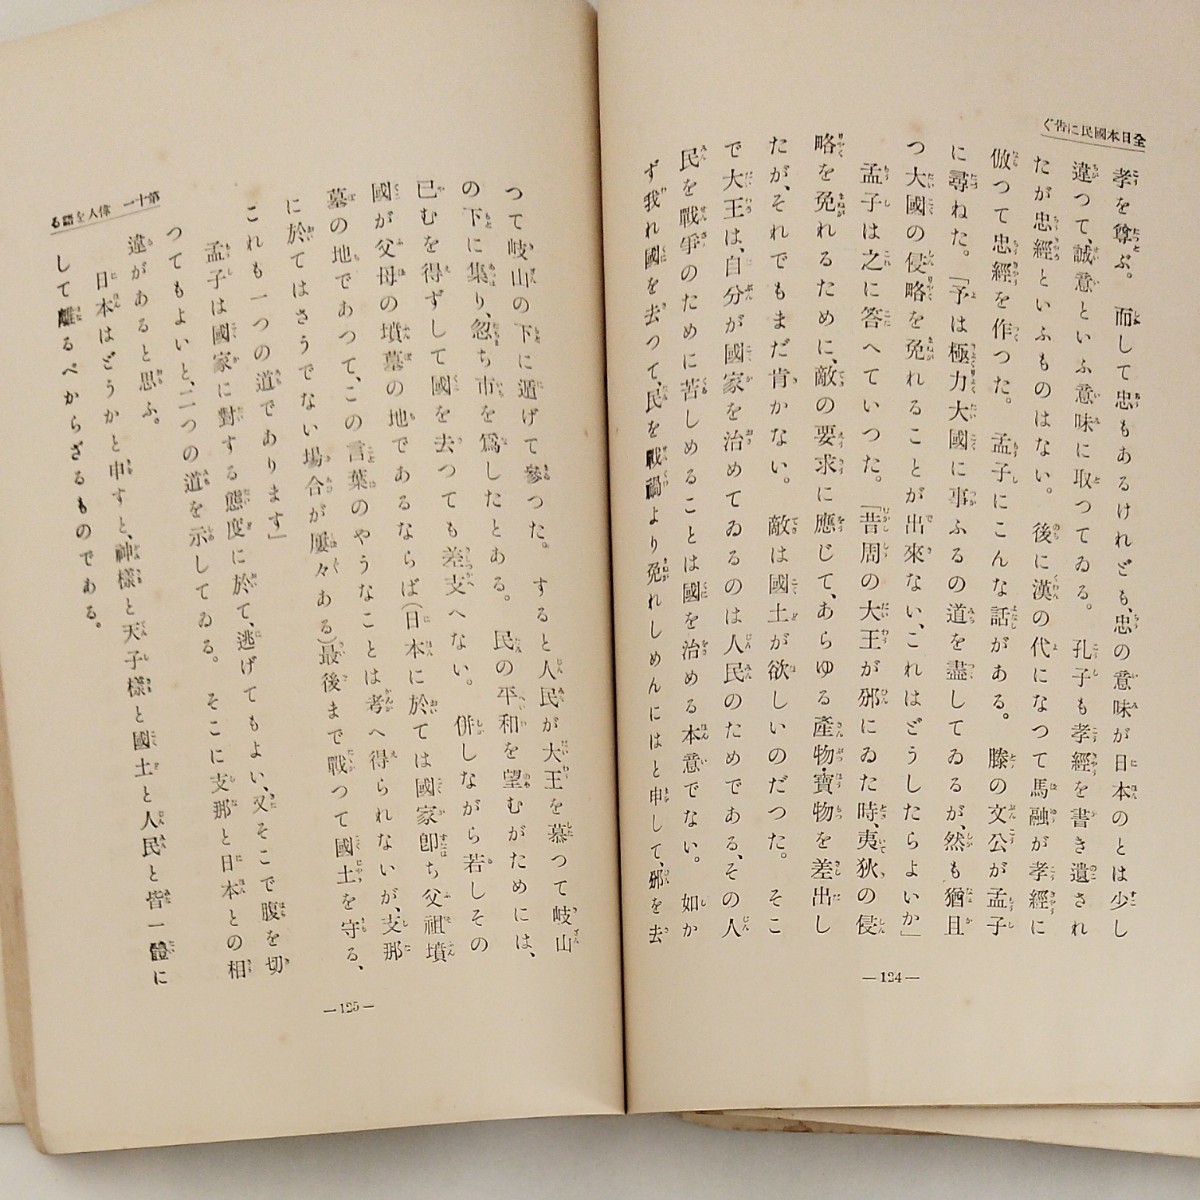 全日本國民に吿ぐ
孝を尊ぶ。 而して忠もあるけれども、忠の意味が日本のとは少し
違つて、誠意といふ意味に取つてゐる。 孔子も孝經を書き遺され
たが忠經といふものはない。 後に漢の代になつて馬融が孝經に
倣つて忠經を作つた。 孟子にこんな話がある。 滕の文公が孟子
に尋ねた。「予は極力大國に事ふるの道を盡してゐるが、然も猶且
つ大國の侵略を免れることが出來ない、これはどうしたらよいか」
孟子は之に答へていつた。「昔周の大王が邠にゐた時、夷狄の侵
略を免れるために、敵の要求に應じて、あらゆる產物・寶物を差出し
たが、それでもまだ肯かない。 敵は國土が欲しいのだつた。 そこ
で大王は、自分が國家を治めてゐるのは人民のためである、その人
民を戰爭のために苦しめることは國を治める本意でない。 如か
ず我れ國を去つて、民を戰禍より免れしめんにはと申して、邠を去
—124—
つて岐山の下に遁げて參つた。 すると人民が大王を慕つて岐山
の下に集り、忽ち市を爲したとある。 民の平和を望むがためには、
已むを得ずして國を去つても差支へない。 併しながら若しその
國が父母の墳墓の地であるならば(日本に於ては國家卽ち父祖墳
墓の地であつて、この言葉のやうなことは考へ得られないが、支那
に於てはさうでない場合が屢々ある)最後まで戰つて國土を守る、
これも一つの道であります」
孟子は國家に對する態度に於て、逃げてもよい、又そこで腹を切
つてもよいと、二つの道を示してゐる。 そこに支那と日本との相
違があると思ふ。
日本はどうかと申すと、神樣と天子樣と國土と人民と皆一體に
して離るべからざるものである。
第十一 偉人を語る
—125—